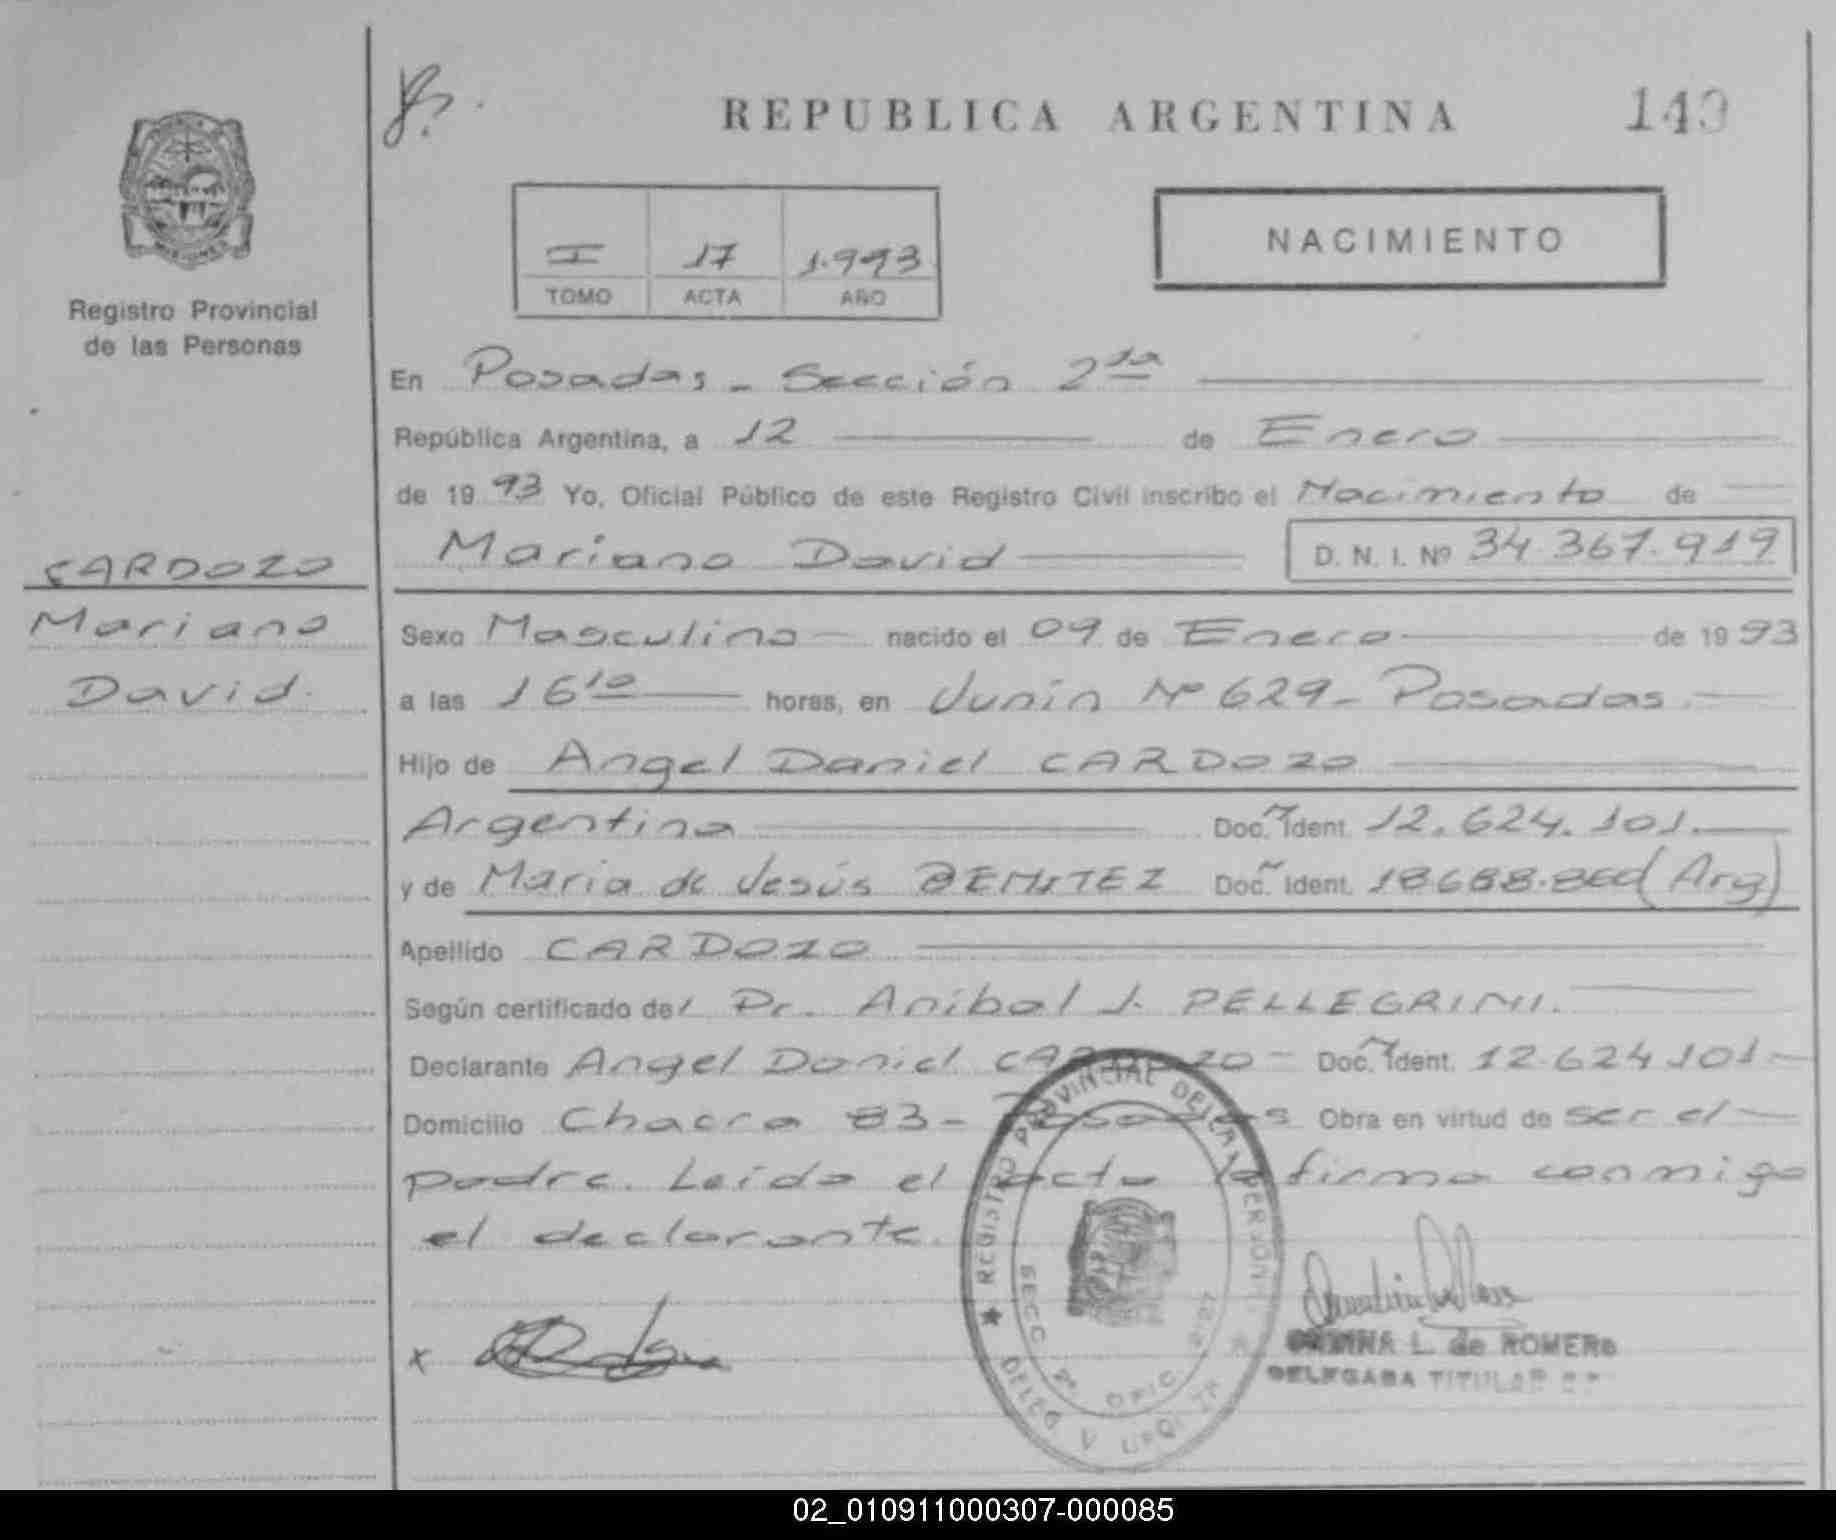 REPUBLICA ARGENTINA
149
MISIONES
Registro Provincial
de las Personas
I 17 1.993
TOMO ACTA AÑO
NACIMIENTO
En Posadas - Sección 2da
República Argentina, a 12 de Enero
de 1993 Yo, Oficial Público de este Registro Civil inscribo el Nacimiento de
Mariano David D. N. I. Nº 34.367.919
CARDOZO
Mariano
David.
Sexo Masculino nacido el 09 de Enero de 1993
a las 16 10 horas, en Junín Nº 629 - Posadas.
Hijo de Angel Daniel CARDOZO
Argentina Doc. Ident. 12.624.101.
y de Maria de Jesús BENITEZ Doc. Ident. (Arg)
Apellido CARDOZO
Según certificado del Dr. Anibal J. PELLEGRINI.
Declarante Angel Daniel CARDOZO - Doc. Ident. 12.624.101 -
Domicilio Chacra 83 - Posadas Obra en virtud de ser el
padre. Leída el acta la firma conmigo
el declarante.
x
REGISTRO PROVINCIAL DE LAS PERSONAS
SECC 2ª OFIC
DELEG V URQUIZA
L. de ROMERO
DELEGADA TITULAR
02_010911000307-000085